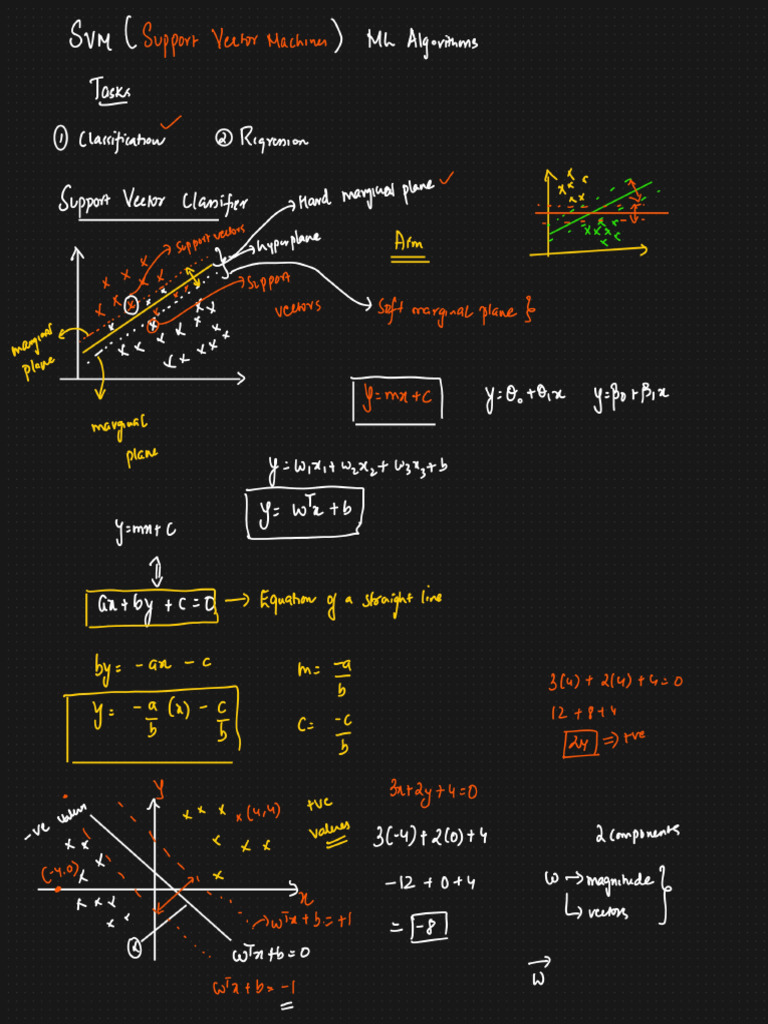 SVM (Support Vector Machines) ML Algorithms
Tasks
① Classification ✓ ② Regression
Support Vector Classifier
→ Hard marginal plane ✓
Support vectors
→ hyperplane
Aim
→ Support
vectors
→ Soft marginal plane }
marginal
plane
marginal
plane
y = mx + c
y = θ₀ + θ₁x
y = β₀ + β₁x
y = w₁x₁ + w₂x₂ + w₃x₃ + b
y = wᵀx + b
y = mx + c
⇕
ax + by + c = 0 → Equation of a straight line
by = -ax - c
m = -a/b
y = -a/b (x) - c/b
c = -c/b
3(4) + 2(4) + 4 = 0
12 + 8 + 4
24 ⇒ +ve
y
-ve values
(4,4)
+ve
values
3x + 2y + 4 = 0
3(-4) + 2(0) + 4
(-4,0)
-12 + 0 + 4
= -8
x
→ wᵀx + b = +1
wᵀx + b = 0
wᵀx + b = -1
2 components
w → magnitude
↳ vectors
w⃗